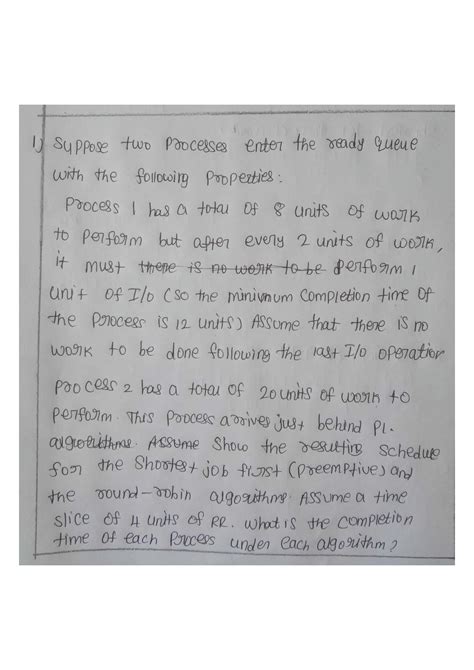 1) Suppose two Processes enter the ready queue
with the following Properties:
Process 1 has a total of 8 units of work
to perform but after every 2 units of work,
it must there is no work to be perform 1
unit of I/o (so the minimum completion time of
the process is 12 units) Assume that there is no
work to be done following the last I/o operation
Process 2 has a total of 20 units of work to
perform. This Process arrives just behind P1.
algorithms. Assume Show the resulting schedule
for the shortest job first (Preemptive) and
the round-robin algorithms. Assume a time
slice of 4 units of RR. What is the completion
time of each process under each algorithm?